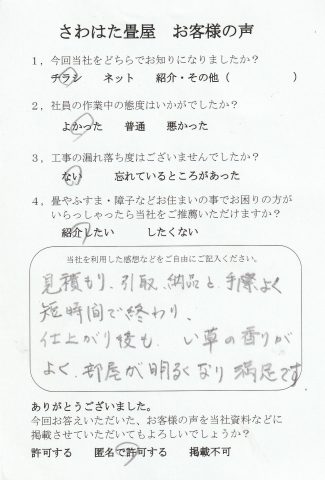 さわはた畳屋 お客様の声
1，今回当社をどちらでお知りになりましたか？
チラシ ネット 紹介・その他（ ）
2，社員の作業中の態度はいかがでしたか？
よかった 普通 悪かった
3，工事の漏れ落ち度はございませんでしたか？
ない 忘れているところがあった
4，畳やふすま・障子などお住まいの事でお困りの方が
いらっしゃったら当社をご推薦いただけますか？
紹介したい したくない
当社を利用した感想などをご自由にご記入ください。
見積もり、引取、納品と手際よく
短時間で終わり、
仕上がり後も、い草の香りが
よく、部屋が明るくなり満足です
ありがとうございました。
今回お答えいただいた、お客様の声を当社資料などに
掲載させていただいてもよろしいでしょうか？
許可する 匿名で許可する 掲載不可